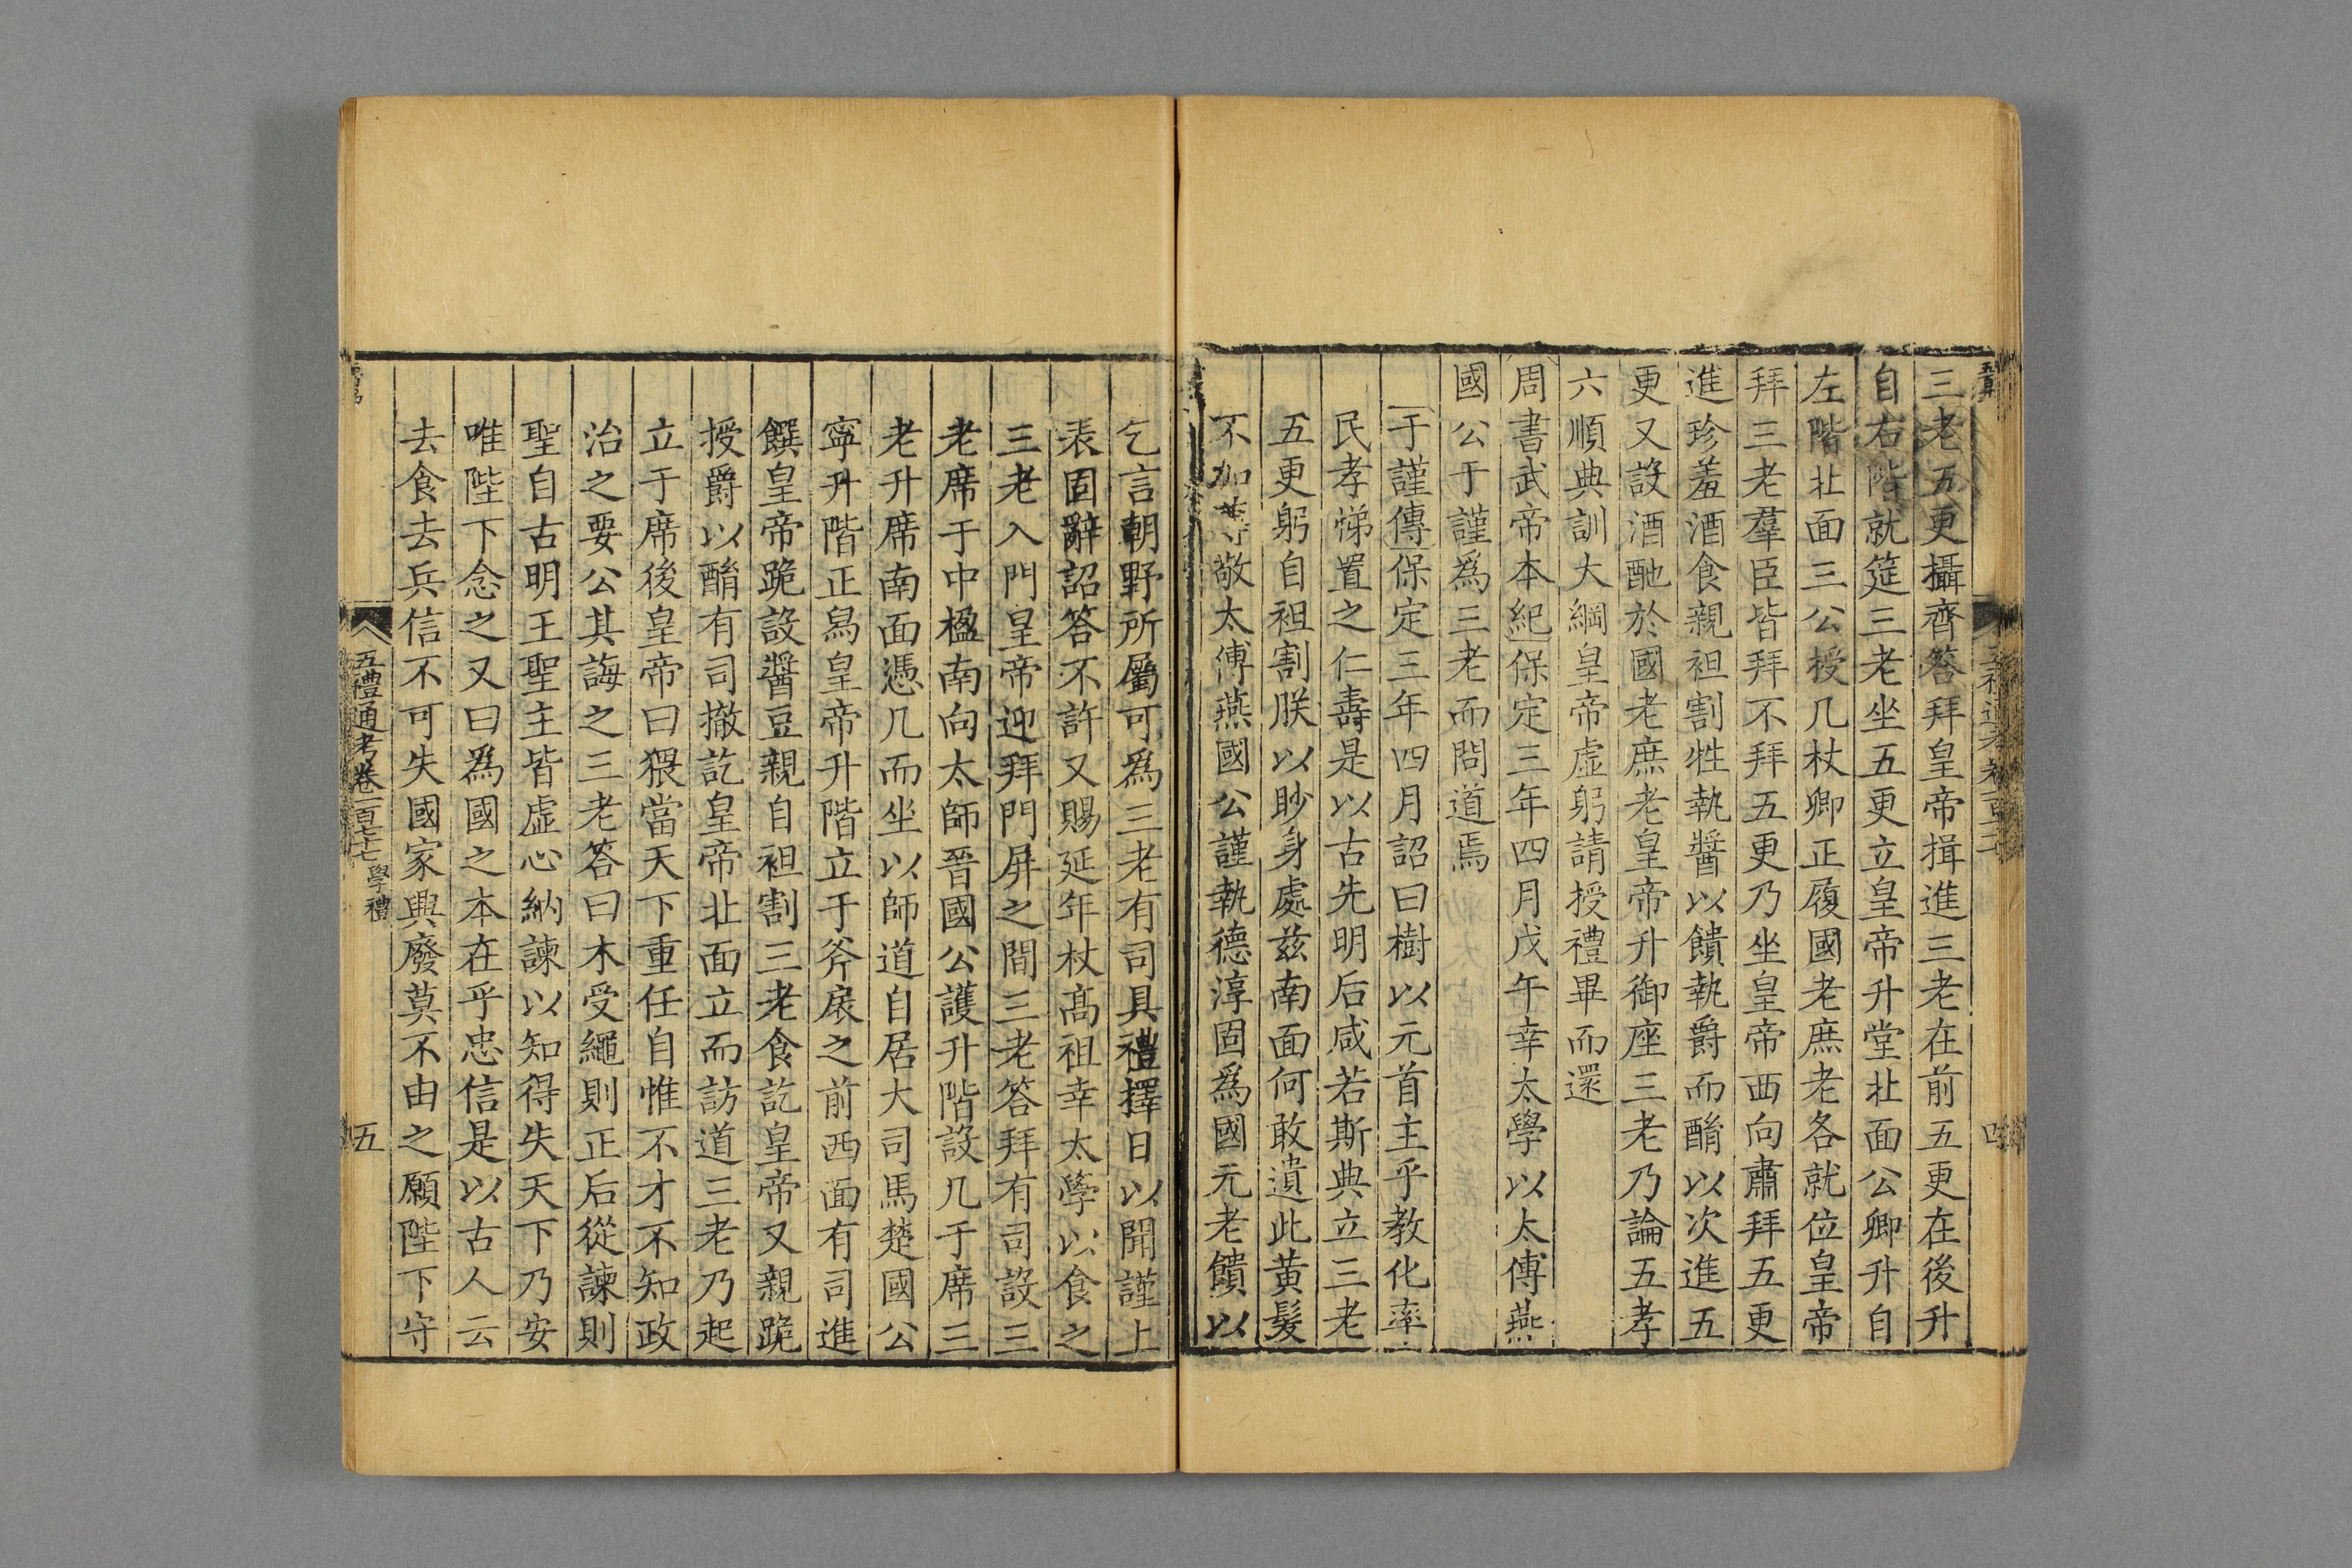 三老五更攝齊答拜皇帝揖進三老在前五更在後升
自右階就筵三老坐五更立皇帝升堂北面公卿升自
左階北面三公授几杖卿正履國老庶老各就位皇帝
拜三老羣臣皆拜不拜五更乃坐皇帝西向肅拜五更
進珍羞酒食親袒割牲執醬以饋執爵而酳以次進五
更又設酒酏於國老庶老皇帝升御座三老乃論五孝
六順典訓大綱皇帝虛躬請授禮畢而還
周書武帝本紀保定三年四月戊午幸太學以太傅燕
國公于謹爲三老而問道焉
于謹傳保定三年四月詔曰樹以元首主乎教化率
民孝悌置之仁壽是以古先明后咸若斯典立三老
五更躬自袒割朕以眇身處兹南面何敢遺此黄髮
不加敬太傅燕國公謹執德淳固爲國元老饋以
乞言朝野所屬可爲三老有司具禮擇日以聞謹上
表固辭詔答不許又賜延年杖高祖幸太學以食之
三老入門皇帝迎拜門屏之間三老答拜有司設三
老席于中楹南向太師晉國公護升階設几于席三
老升席南面憑几而坐以師道自居大司馬楚國公
寧升階正舄皇帝升階立于斧扆之前西面有司進
饌皇帝跪設醬豆親自袒割三老食訖皇帝又親跪
授爵以酳有司撤訖皇帝北面立而訪道三老乃起
立于席後皇帝曰猥當天下重任自惟不才不知政
治之要公其誨之三老答曰木受繩則正后從諫則
聖自古明王聖主皆虛心納諫以知得失天下乃安
唯陛下念之又曰爲國之本在乎忠信是以古人云
去食去兵信不可失國家興廢莫不由之願陛下守
五禮通考卷一百七十七 學禮
五